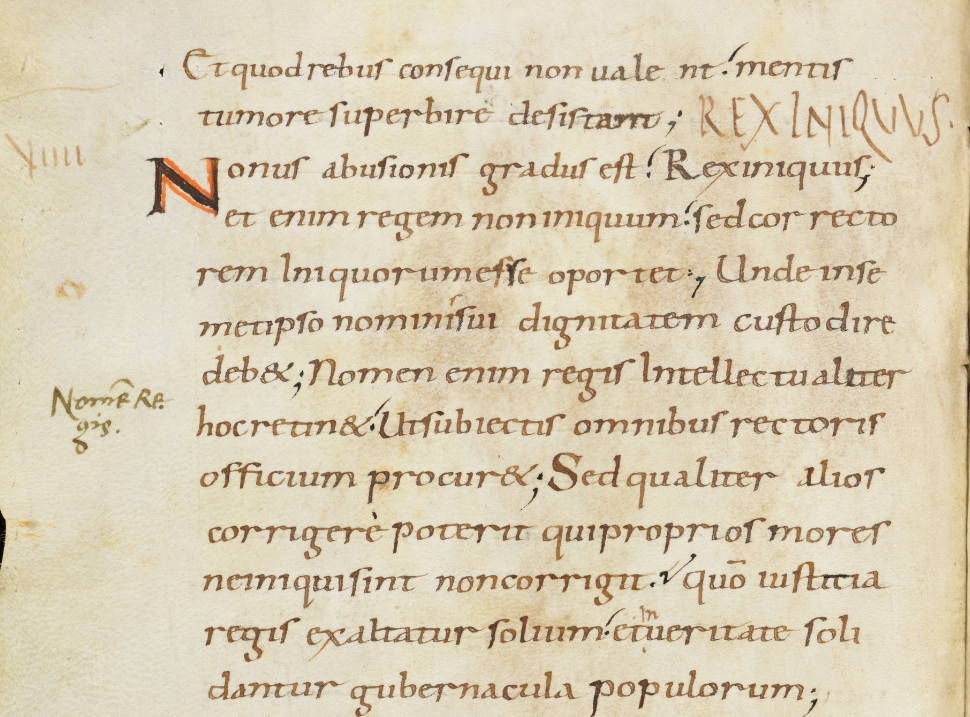 Et quod rebus consequi non valent. mentis
tumore superbire desistant; REX INIQUUS.
VIIII
Nonus abusionis gradus est. Rex iniquus;
et enim regem non iniquum. sed correcto
rem Iniquorum esse oportet; Unde in se
metipso nominis sui dignitatem custodire
deb&; Nomen enim regis Intellectualiter
Nomē Re
gis.
hoc retin&. Ut subiectis omnibus rectoris
officium procur&; Sed qualiter alios
corrigere poterit qui proprios mores
ne iniqui sint non corrigit. quō iustitia
regis exaltatur solium. et In ueritate soli
dantur gubernacula populorum;